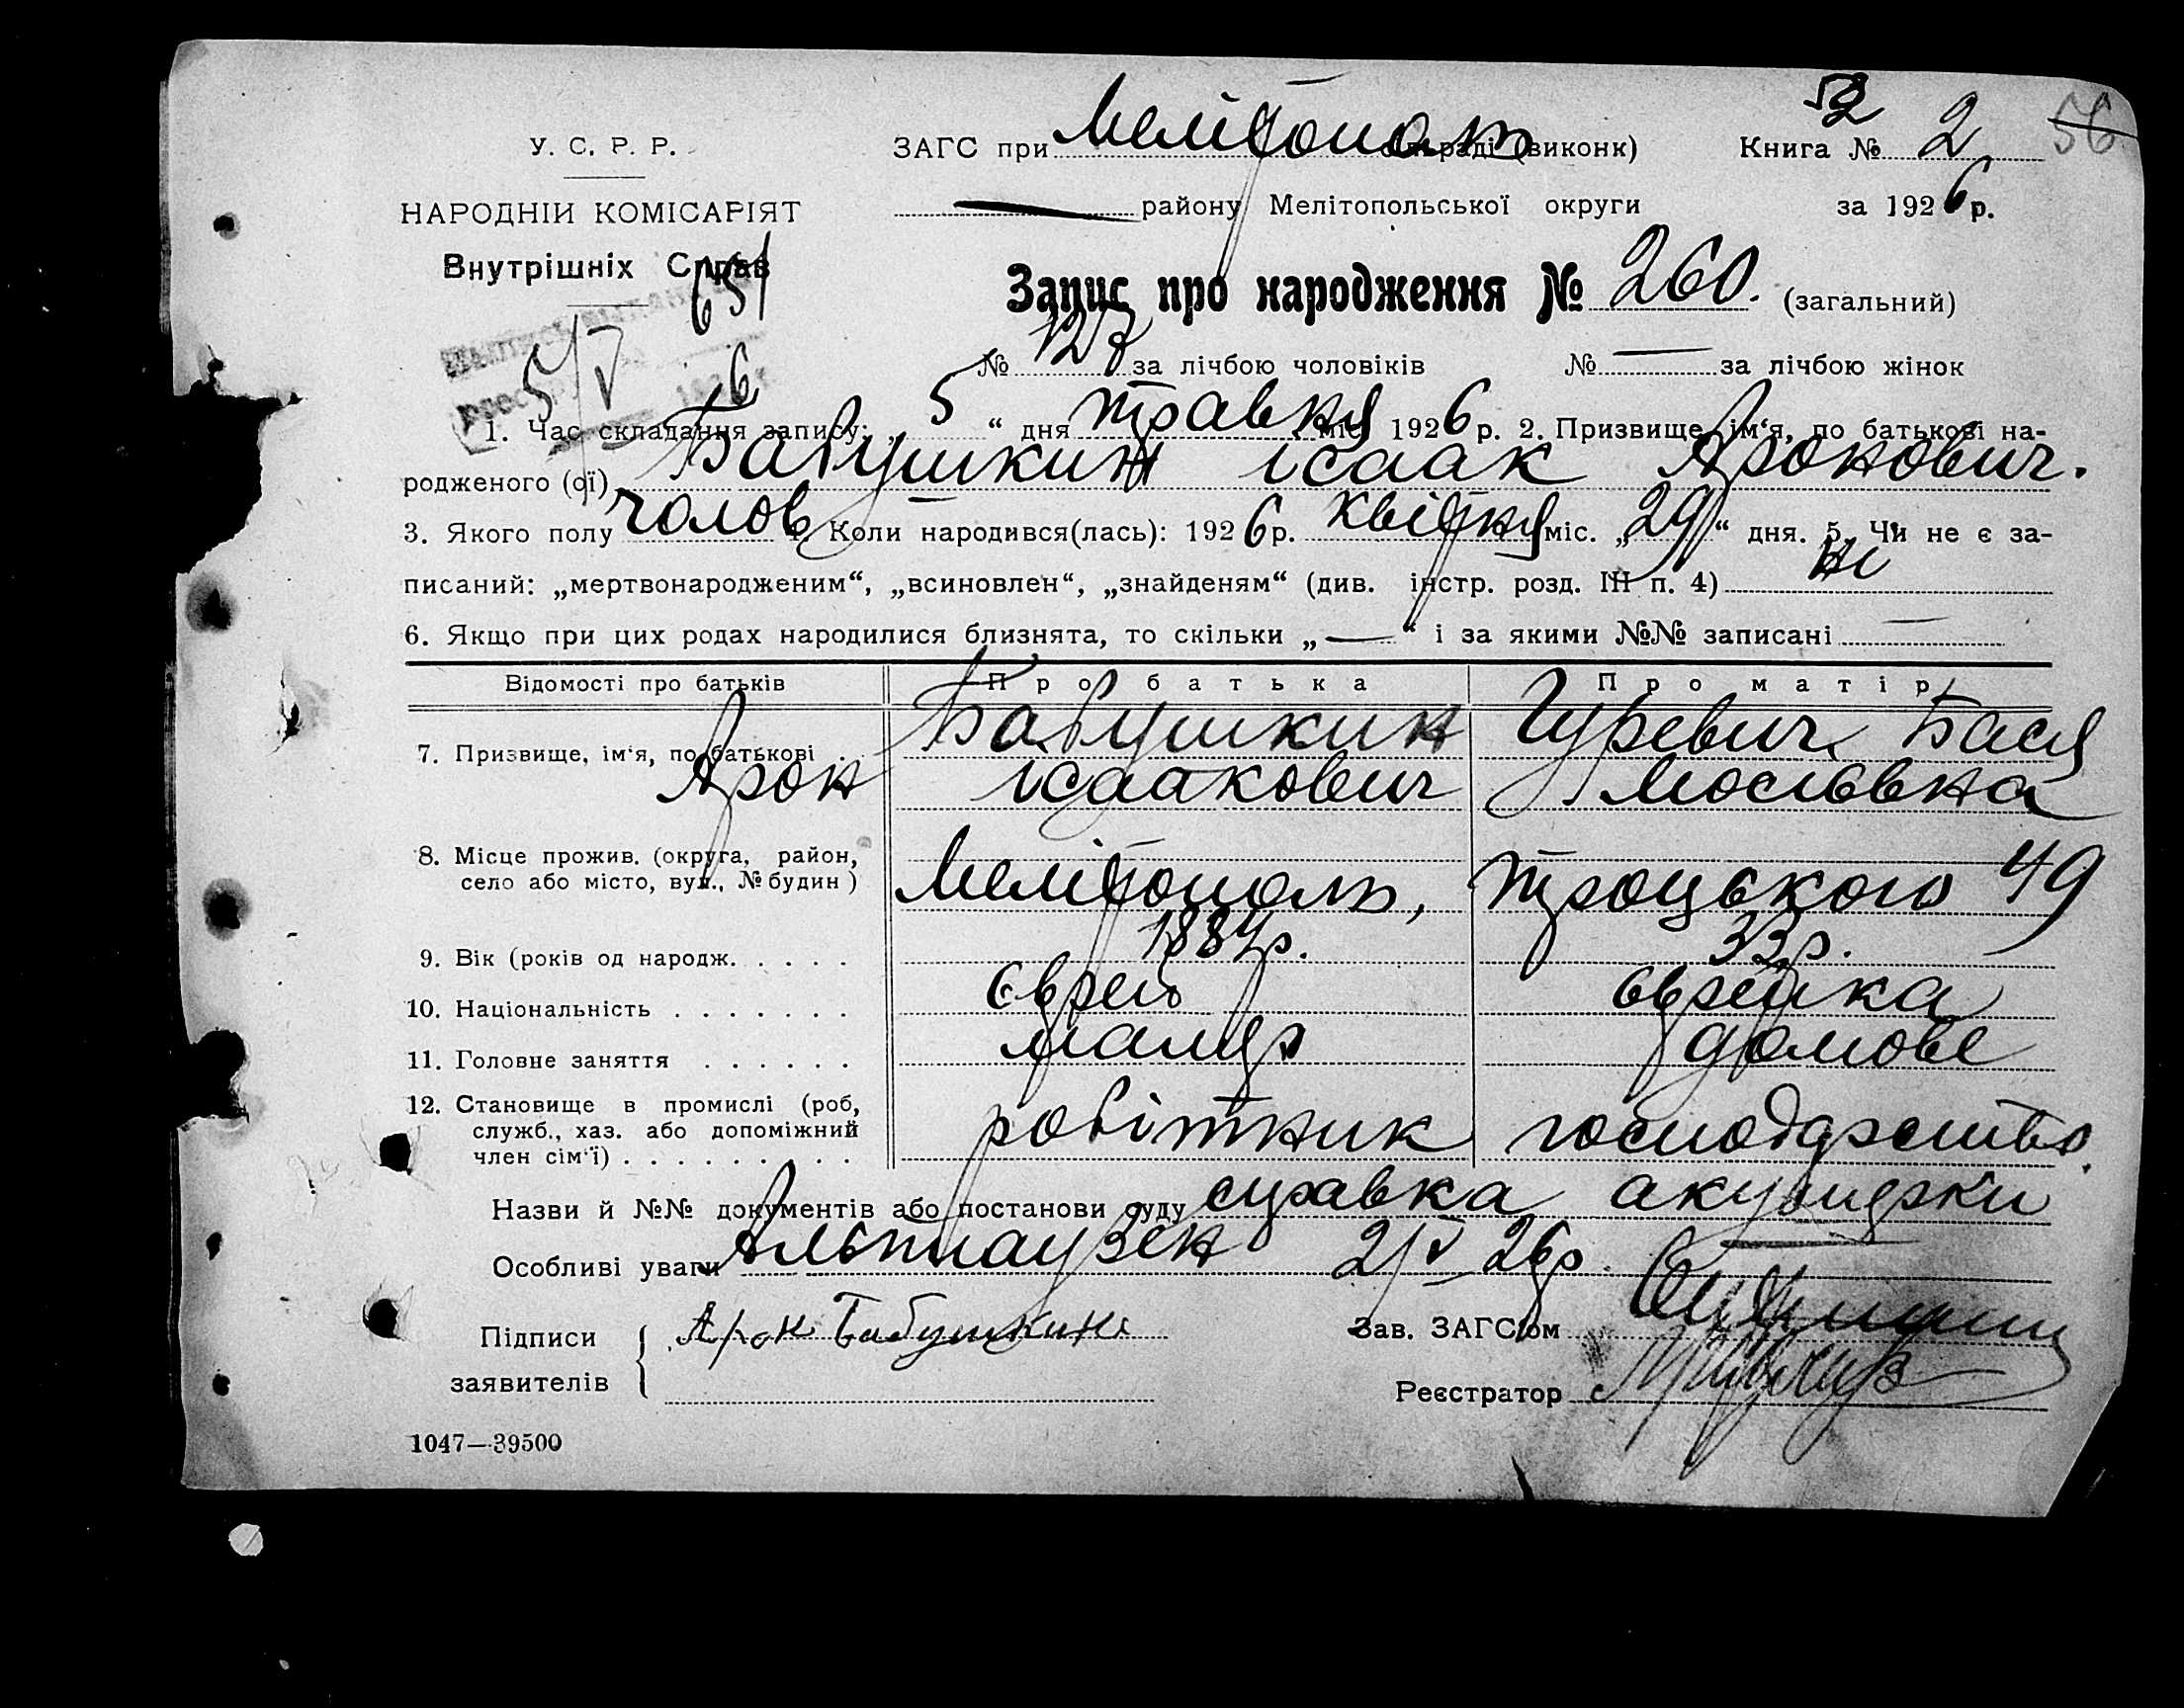 52
У. С. Р. Р. ЗАГС при Мелітополь раді (виконк) Книга № 2 56
НАРОДНІЙ КОМІСАРІЯТ — району Мелітопольської округи за 1926 р.
Внутрішніх Справ
651
Запис про народження № 260. (загальний)
5/V 6
№ 127 за лічбою чоловіків № — за лічбою жінок
1. Час складання запису: „ 5 “ дня травня міс. 1926 р. 2. Призвище, ім‘я, по батькові на-
родженого (ої) Бабушкин Ісаак Аронович.
3. Якого полу чолов 4. Коли народився(лась): 1926 р. квітня міс. „ 29 “ дня. 5. Чи не є за-
писаний: „мертвонародженим“, „всиновлен“, „знайденям“ (див. інстр. розд. III п. 4) ні
6. Якщо при цих родах народилися близнята, то скільки „ — “ і за якими №№ записані —
Відомості про батьків Про батька Про матір
7. Призвище, ім‘я, по батькові . Бабушкин Гуревич Бася
Арон Ісаакович Мосієвна
8. Місце прожив. (округа, район,
село або місто, вул., № будин) Мелітополь, Троцького 49
9. Вік (років од народж. . . . . 1884 р. 33 р.
10. Національність . . . . . . . єврей єврейка
11. Головне заняття . . . . . . маляр домове
12. Становище в промислі (роб,
служб., хаз. або допоміжний робітник господарство.
член сім‘ї) . . . . . . . . .
Назви й №№ документів або постанови суду справка акушерки
Особливі уваги Альтгаузен 2/V 26 р.
Підписи Арон Бабушкин Зав. ЗАГС‘ом
заявителів Реєстратор
1047—39500